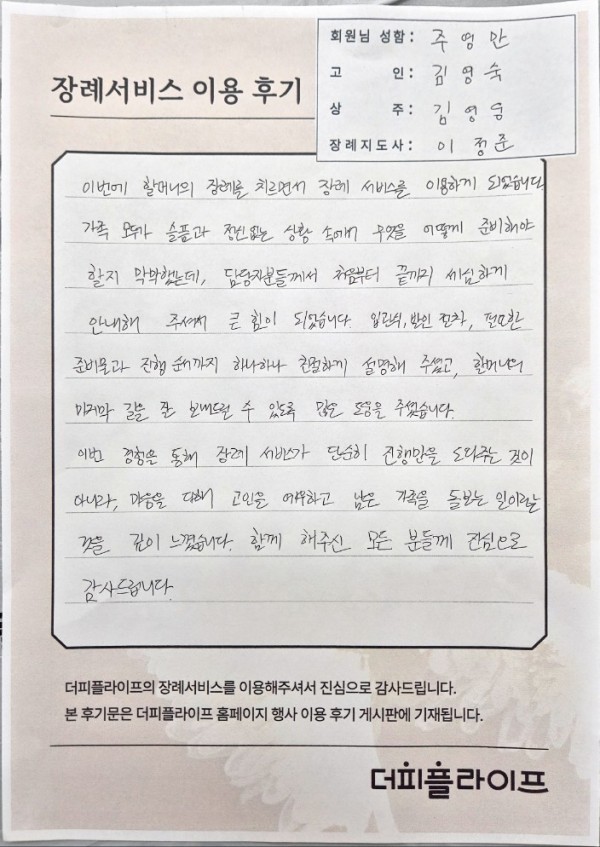 회원님 성함: 주영만
고 인: 김영숙
상 주: 김영승
장례지도사: 이정준
장례서비스 이용 후기
이번에 할머니의 장례를 치르면서 장례 서비스를 이용하게 되었습니다
가족 모두가 슬픔과 정신없는 상황 속에서 무엇을 어떻게 준비해야
할지 막막했는데, 담당자분들께서 처음부터 끝까지 세심하게
안내해 주셔서 큰 힘이 되었습니다. 입관식, 발인 절차, 필요한
준비물과 진행 순서까지 하나하나 친절하게 설명해 주셨고, 할머니의
마지막 길을 잘 보내드릴 수 있도록 많은 도움을 주셨습니다.
이번 경험을 통해 장례 서비스가 단순히 진행만을 도와주는 것이
아니라, 마음을 다해 고인을 예우하고 남은 가족을 돌보는 일이라는
것을 깊이 느꼈습니다. 함께 해주신 모든 분들께 진심으로
감사드립니다.
더피플라이프의 장례서비스를 이용해주셔서 진심으로 감사드립니다.
본 후기문은 더피플라이프 홈페이지 행사 이용 후기 게시판에 기재됩니다.
더피플라이프